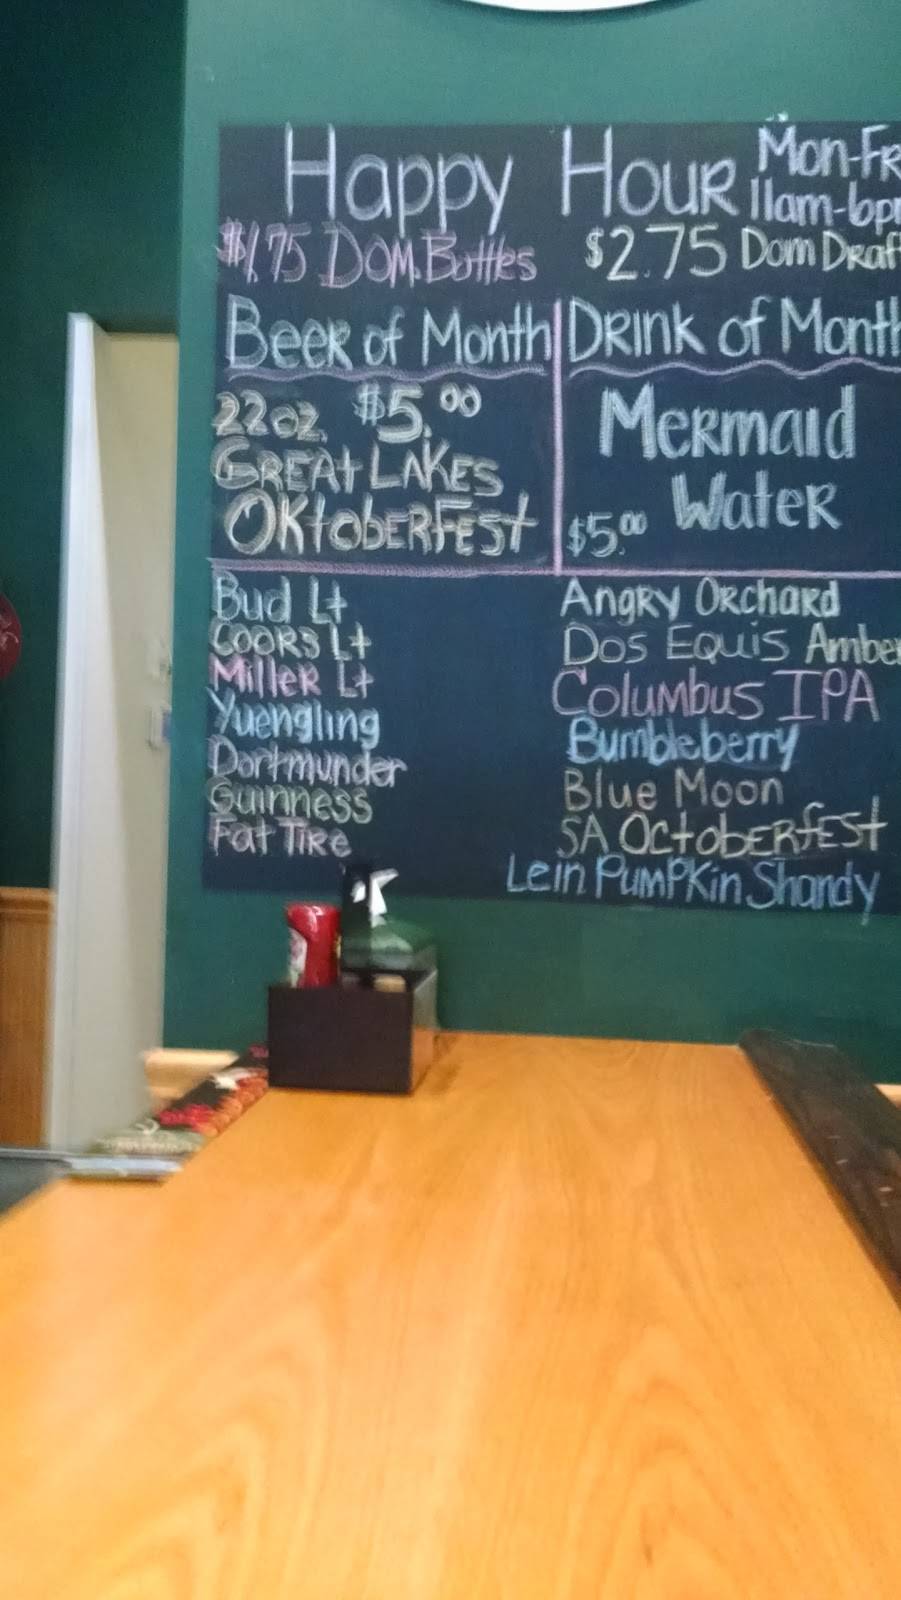 Happy Hour Mon-Fr
11am-6p
$1.75 Dom. Bottles $2.75 Dom Draf
Beer of Month Drink of Month
22oz. $5.00
Great Lakes
Oktoberfest
Mermaid
Water
$5.00
Bud Lt
Coors Lt
Miller Lt
Yuengling
Dortmunder
Guinness
Fat Tire
Angry Orchard
Dos Equis Amber
Columbus IPA
Bumbleberry
Blue Moon
SA Octoberfest
Lein Pumpkin Shandy